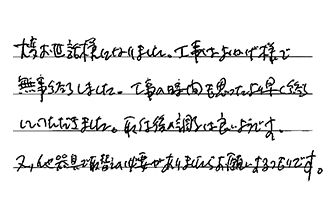 大変お世話様になりました。工事はおかげ様で
無事終了しました。工事の時間も思ったより早く終了
していただきました。取付後の調子は良いようです。
又、他器具で取替えの必要がありましたらお願いするつもりです。